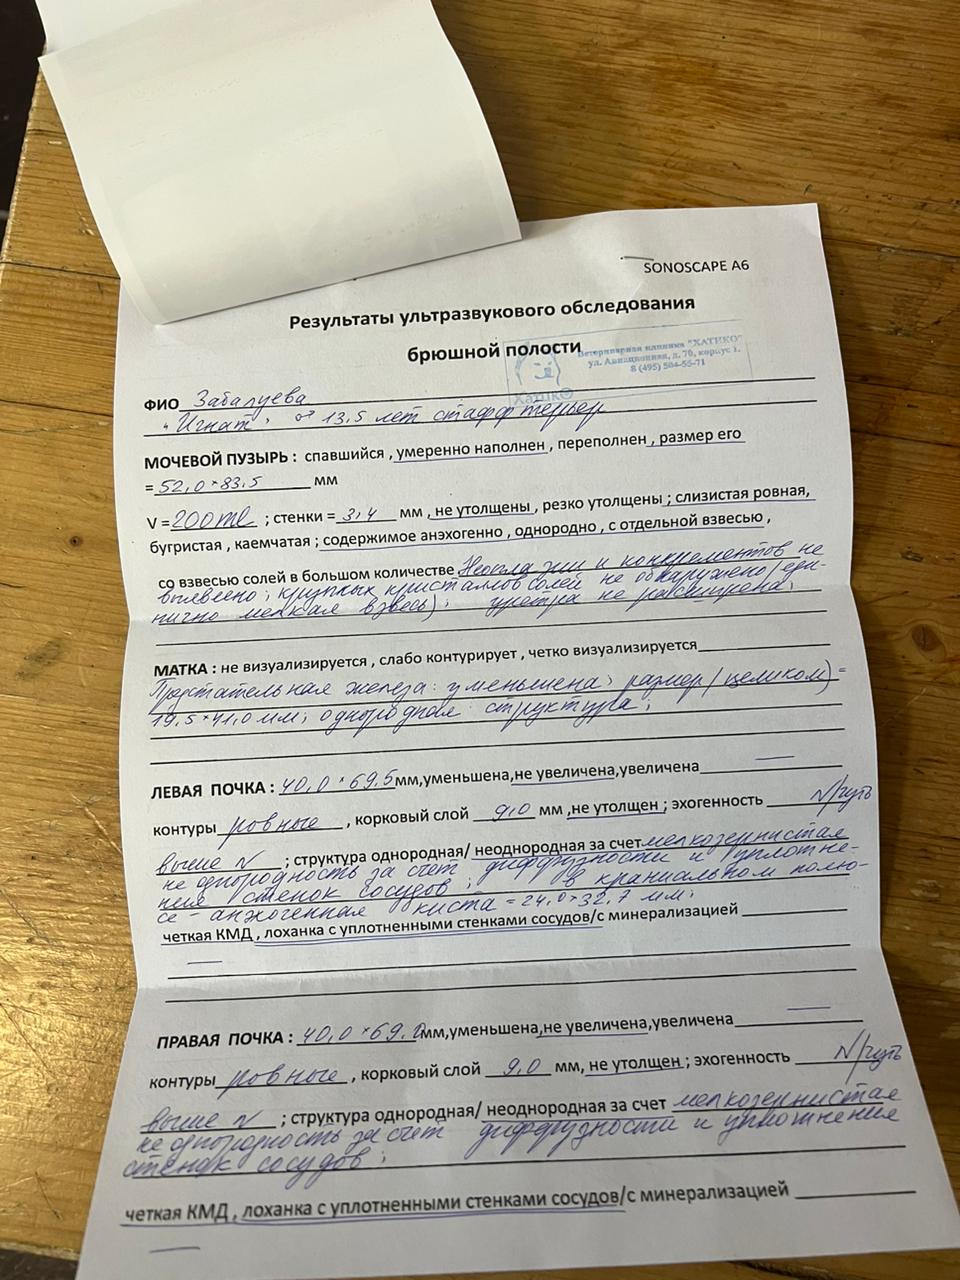 SONOSCAPE A6
Результаты ультразвукового обследования
брюшной полости
Ветеринарная клиника "ХАТИКО"
ул. Авиационная, д. 70, корпус 1.
8 (495) 504-55-71
Хатико
ФИО Забалуева
"Игнат" 13,5 лет стафф терьер
МОЧЕВОЙ ПУЗЫРЬ : спавшийся , умеренно наполнен , переполнен , размер его
= 52,0*83,5 мм
V = 200ml ; стенки = 3,4 мм , не утолщены , резко утолщены ; слизистая ровная,
бугристая , каемчатая ; содержимое анэхогенно , однородно , с отдельной взвесью ,
со взвесью солей в большом количестве Неоплазии и конкрементов не
выявлено; крупных кристаллов солей не обнаружено (еди-
нично мелкая взвесь); уретра не расширена;
МАТКА : не визуализируется , слабо контурирует , четко визуализируется
Предстательная железа: уменьшена; размер (целиком) =
19,5*41,0 мм; однородная структура;
ЛЕВАЯ ПОЧКА : 40,0*69,5 мм,уменьшена,не увеличена,увеличена
контуры ровные , корковый слой 9,0 мм ,не утолщен ; эхогенность N/чуть
выше N ; структура однородная/ неоднородная за счет мелкозернистая
неоднородность за счет диффузности и уплотне-
ния стенок сосудов ; в краниальном полю-
се - анэхогенная киста = 24,0*32,7 мм;
четкая КМД , лоханка с уплотненными стенками сосудов/с минерализацией
ПРАВАЯ ПОЧКА : 40,0*69,0 мм,уменьшена,не увеличена,увеличена
контуры ровные , корковый слой 9,0 мм, не утолщен ; эхогенность N/чуть
выше N ; структура однородная/ неоднородная за счет мелкозернистая
неоднородность за счет диффузности и уплотнения
стенок сосудов ;
четкая КМД , лоханка с уплотненными стенками сосудов/с минерализацией